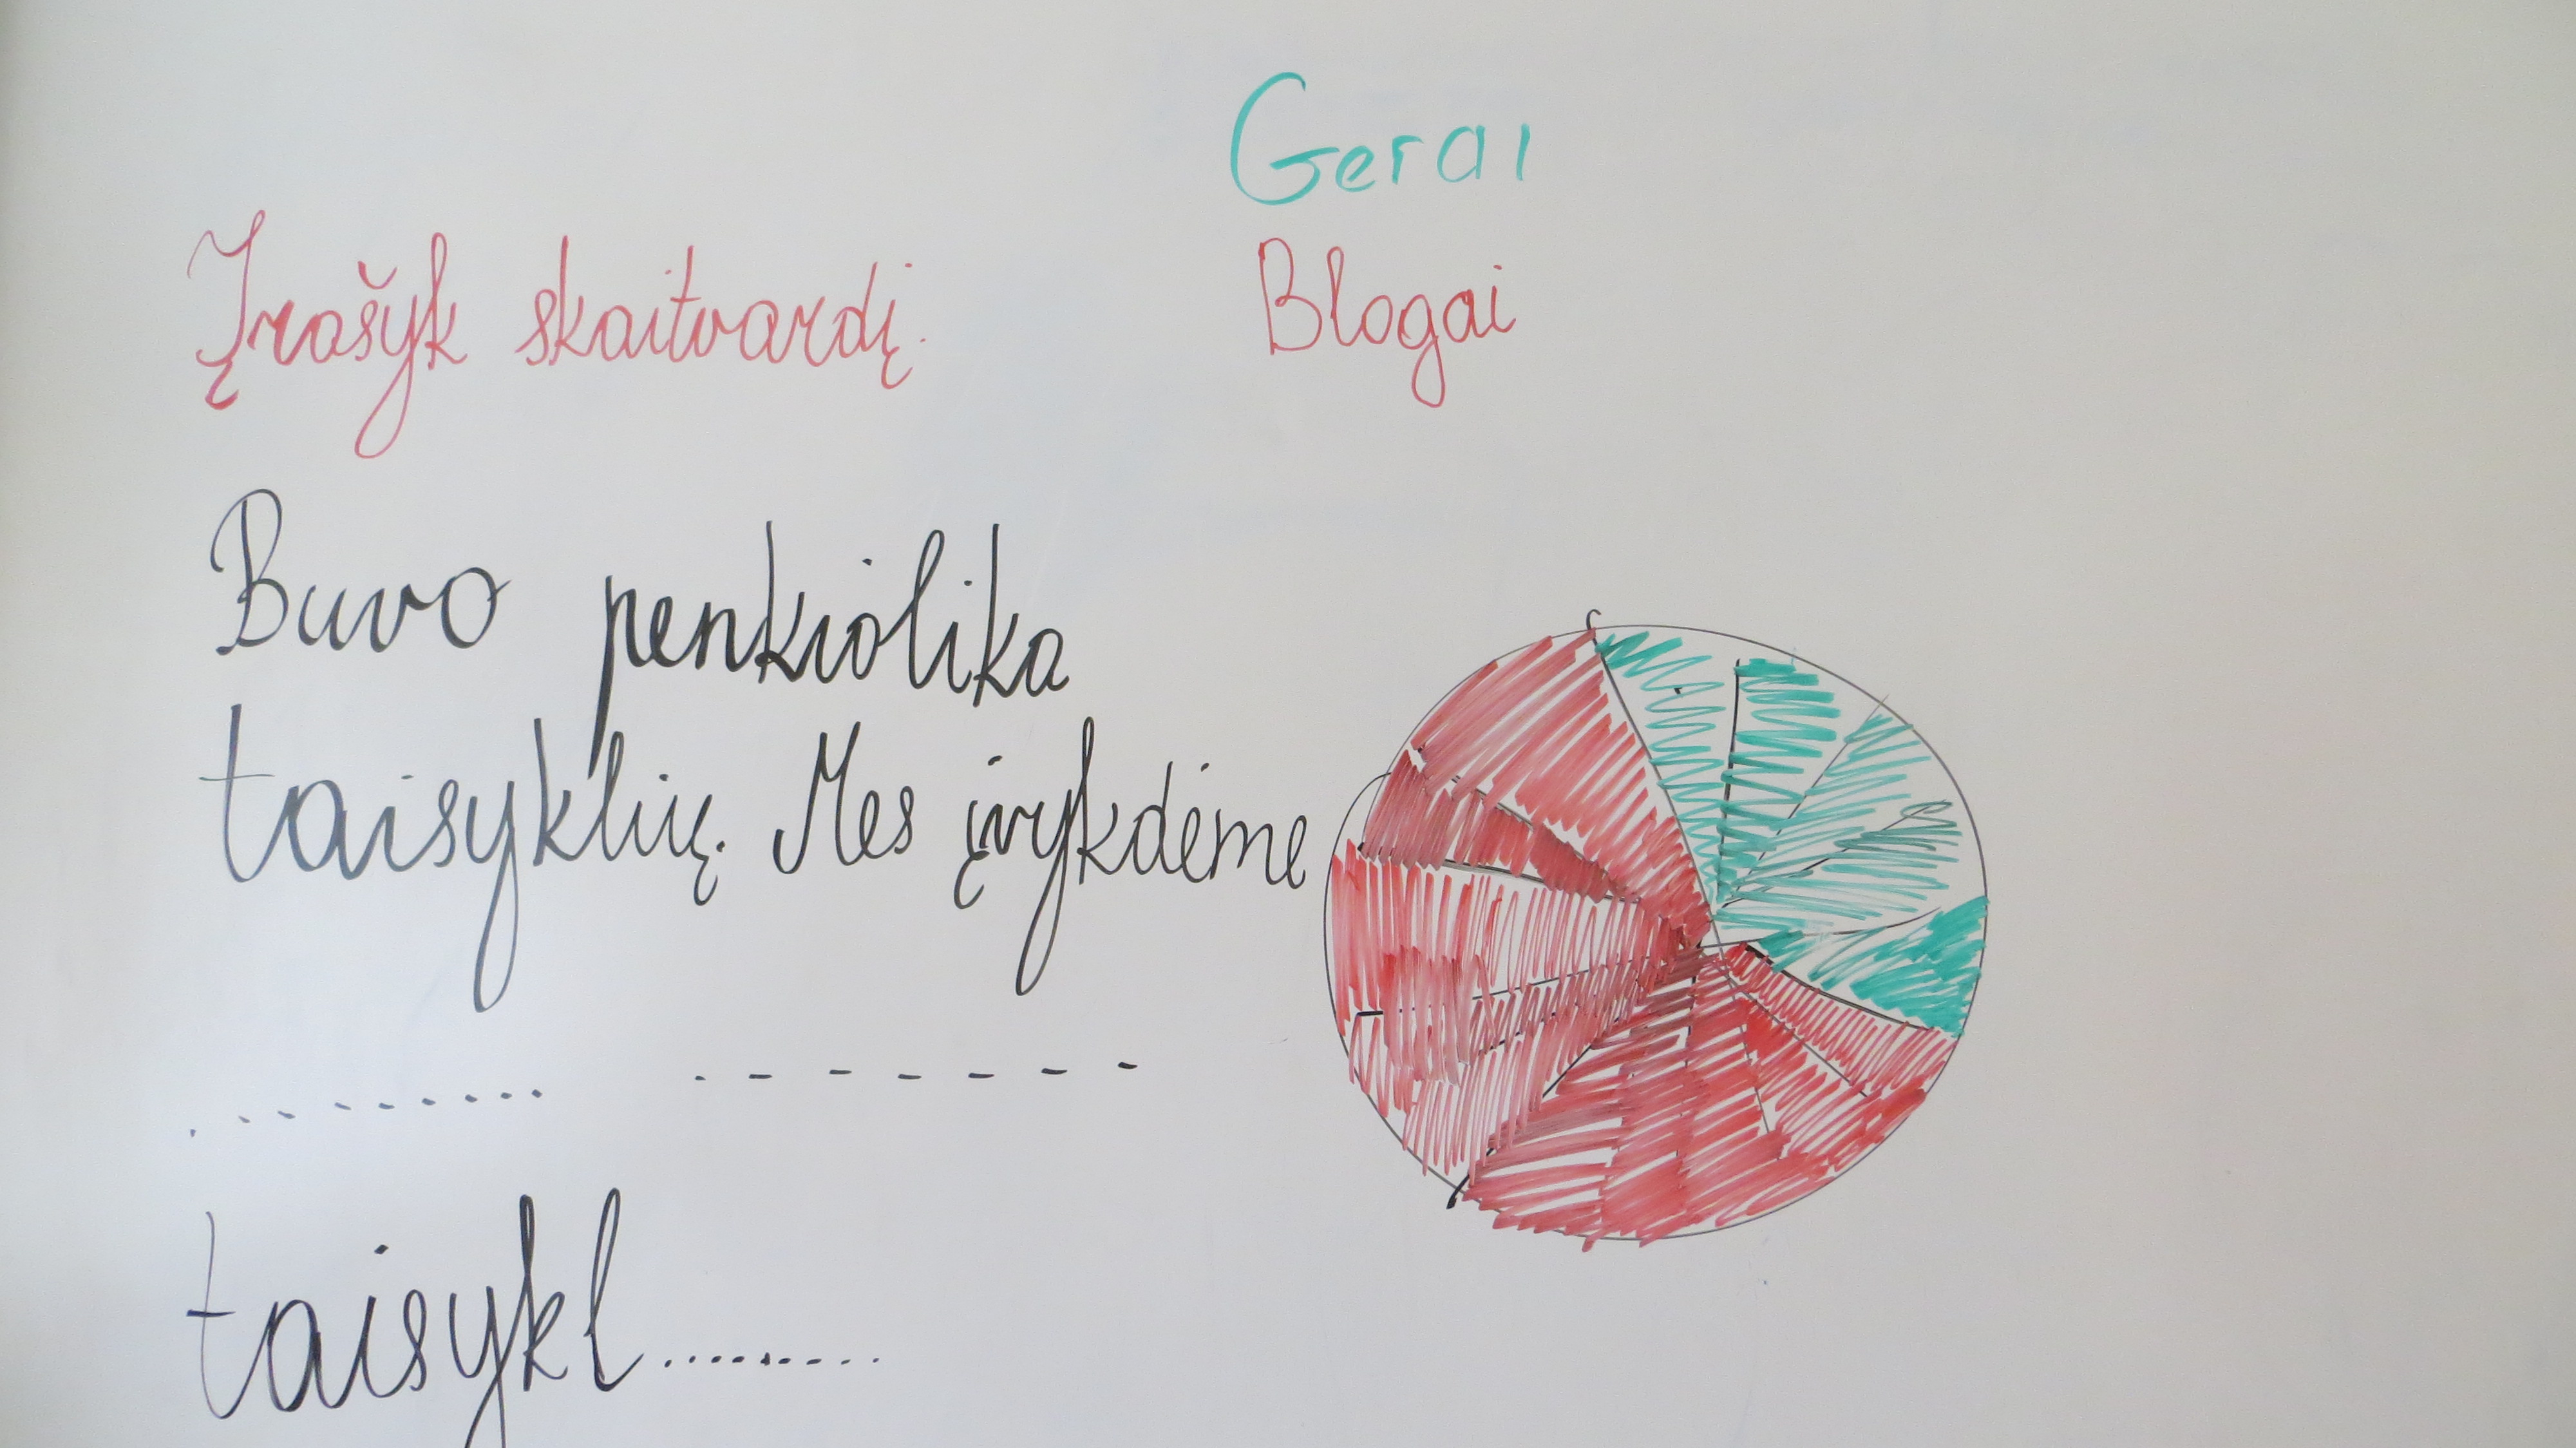 Gerai
Įrašyk skaitvardį.
Blogai
Buvo penkiolika
taisyklių. Mes įvykdėme
......... - - - - - - -
taisykl.........